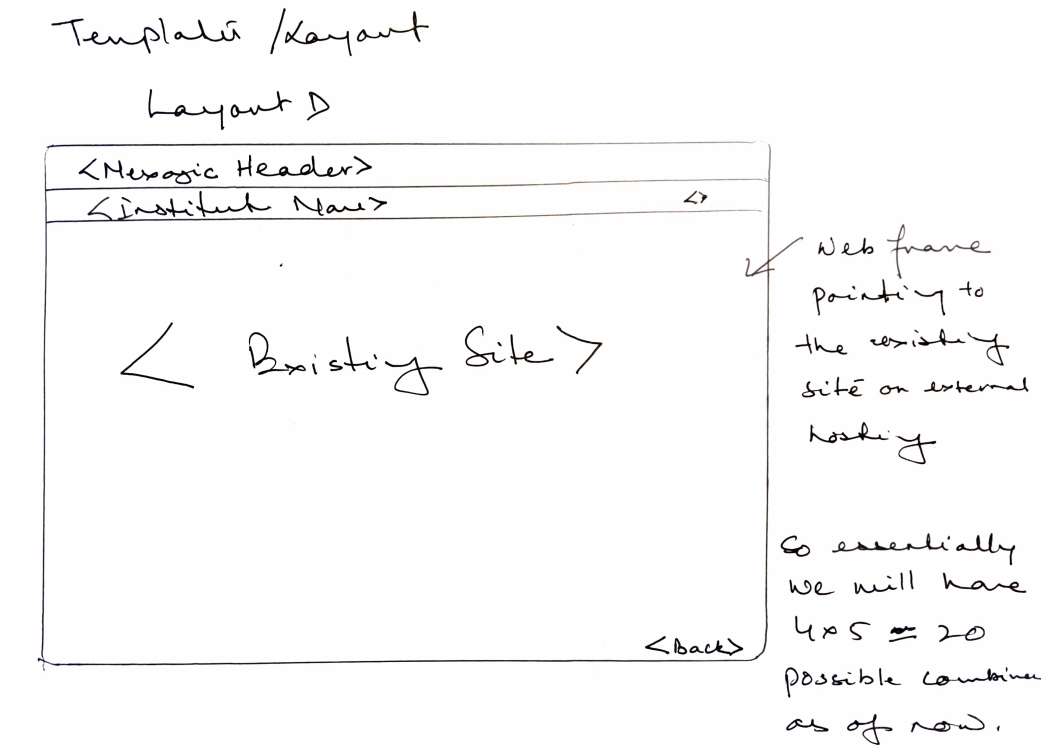 Template / Layout
Layout D
<Mexogic Header>
<Institut Name>
<>
< Existing Site >
<Back>
Web frame
pointing to
the existing
site on external
hosting
So essentially
we will have
4x5 = 20
possible combine
as of now.